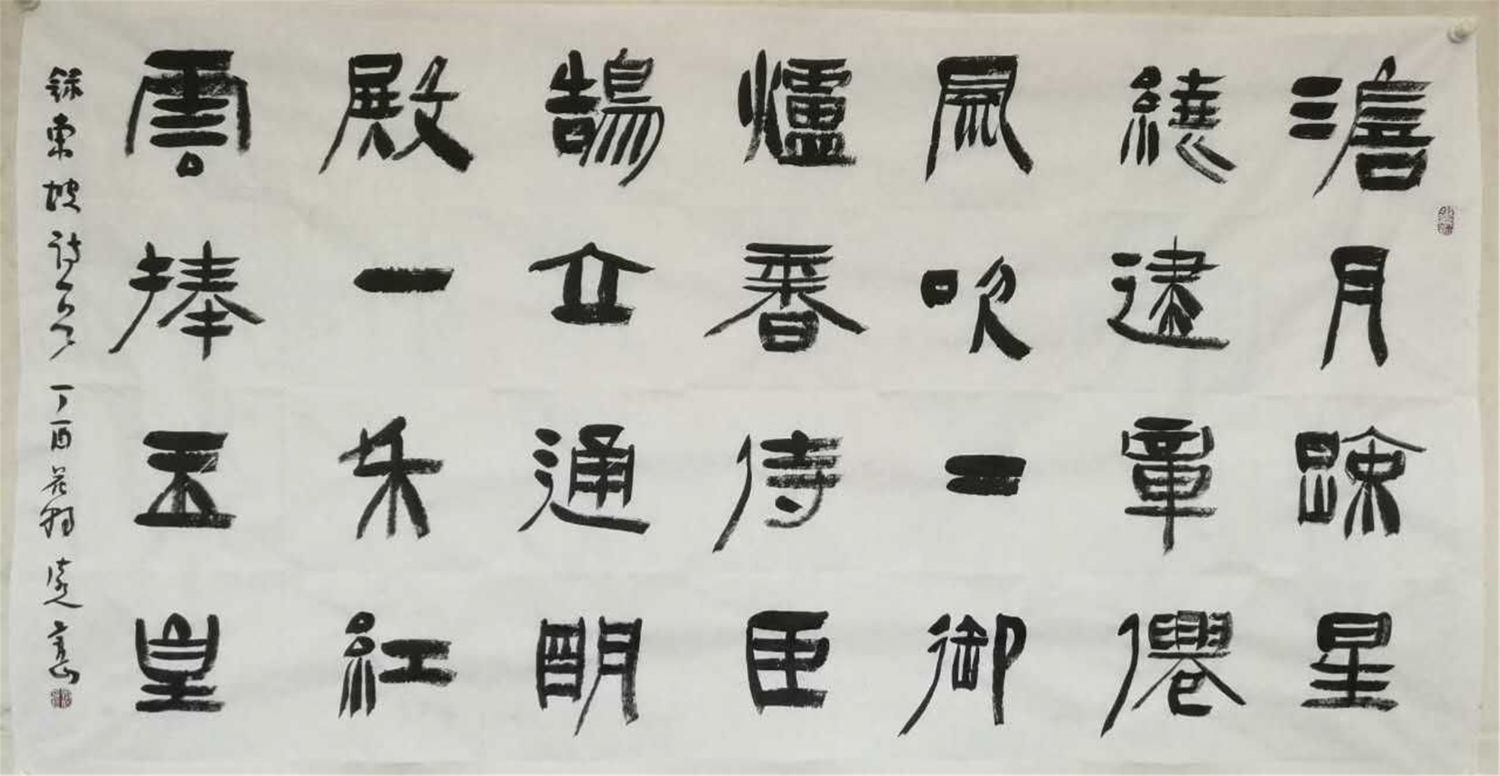 澹月踈星
繞建章僊
風吹下御
爐香侍臣
鵠立通明
殿一朵紅
雲捧玉皇
錄東坡詩 丁酉花朝